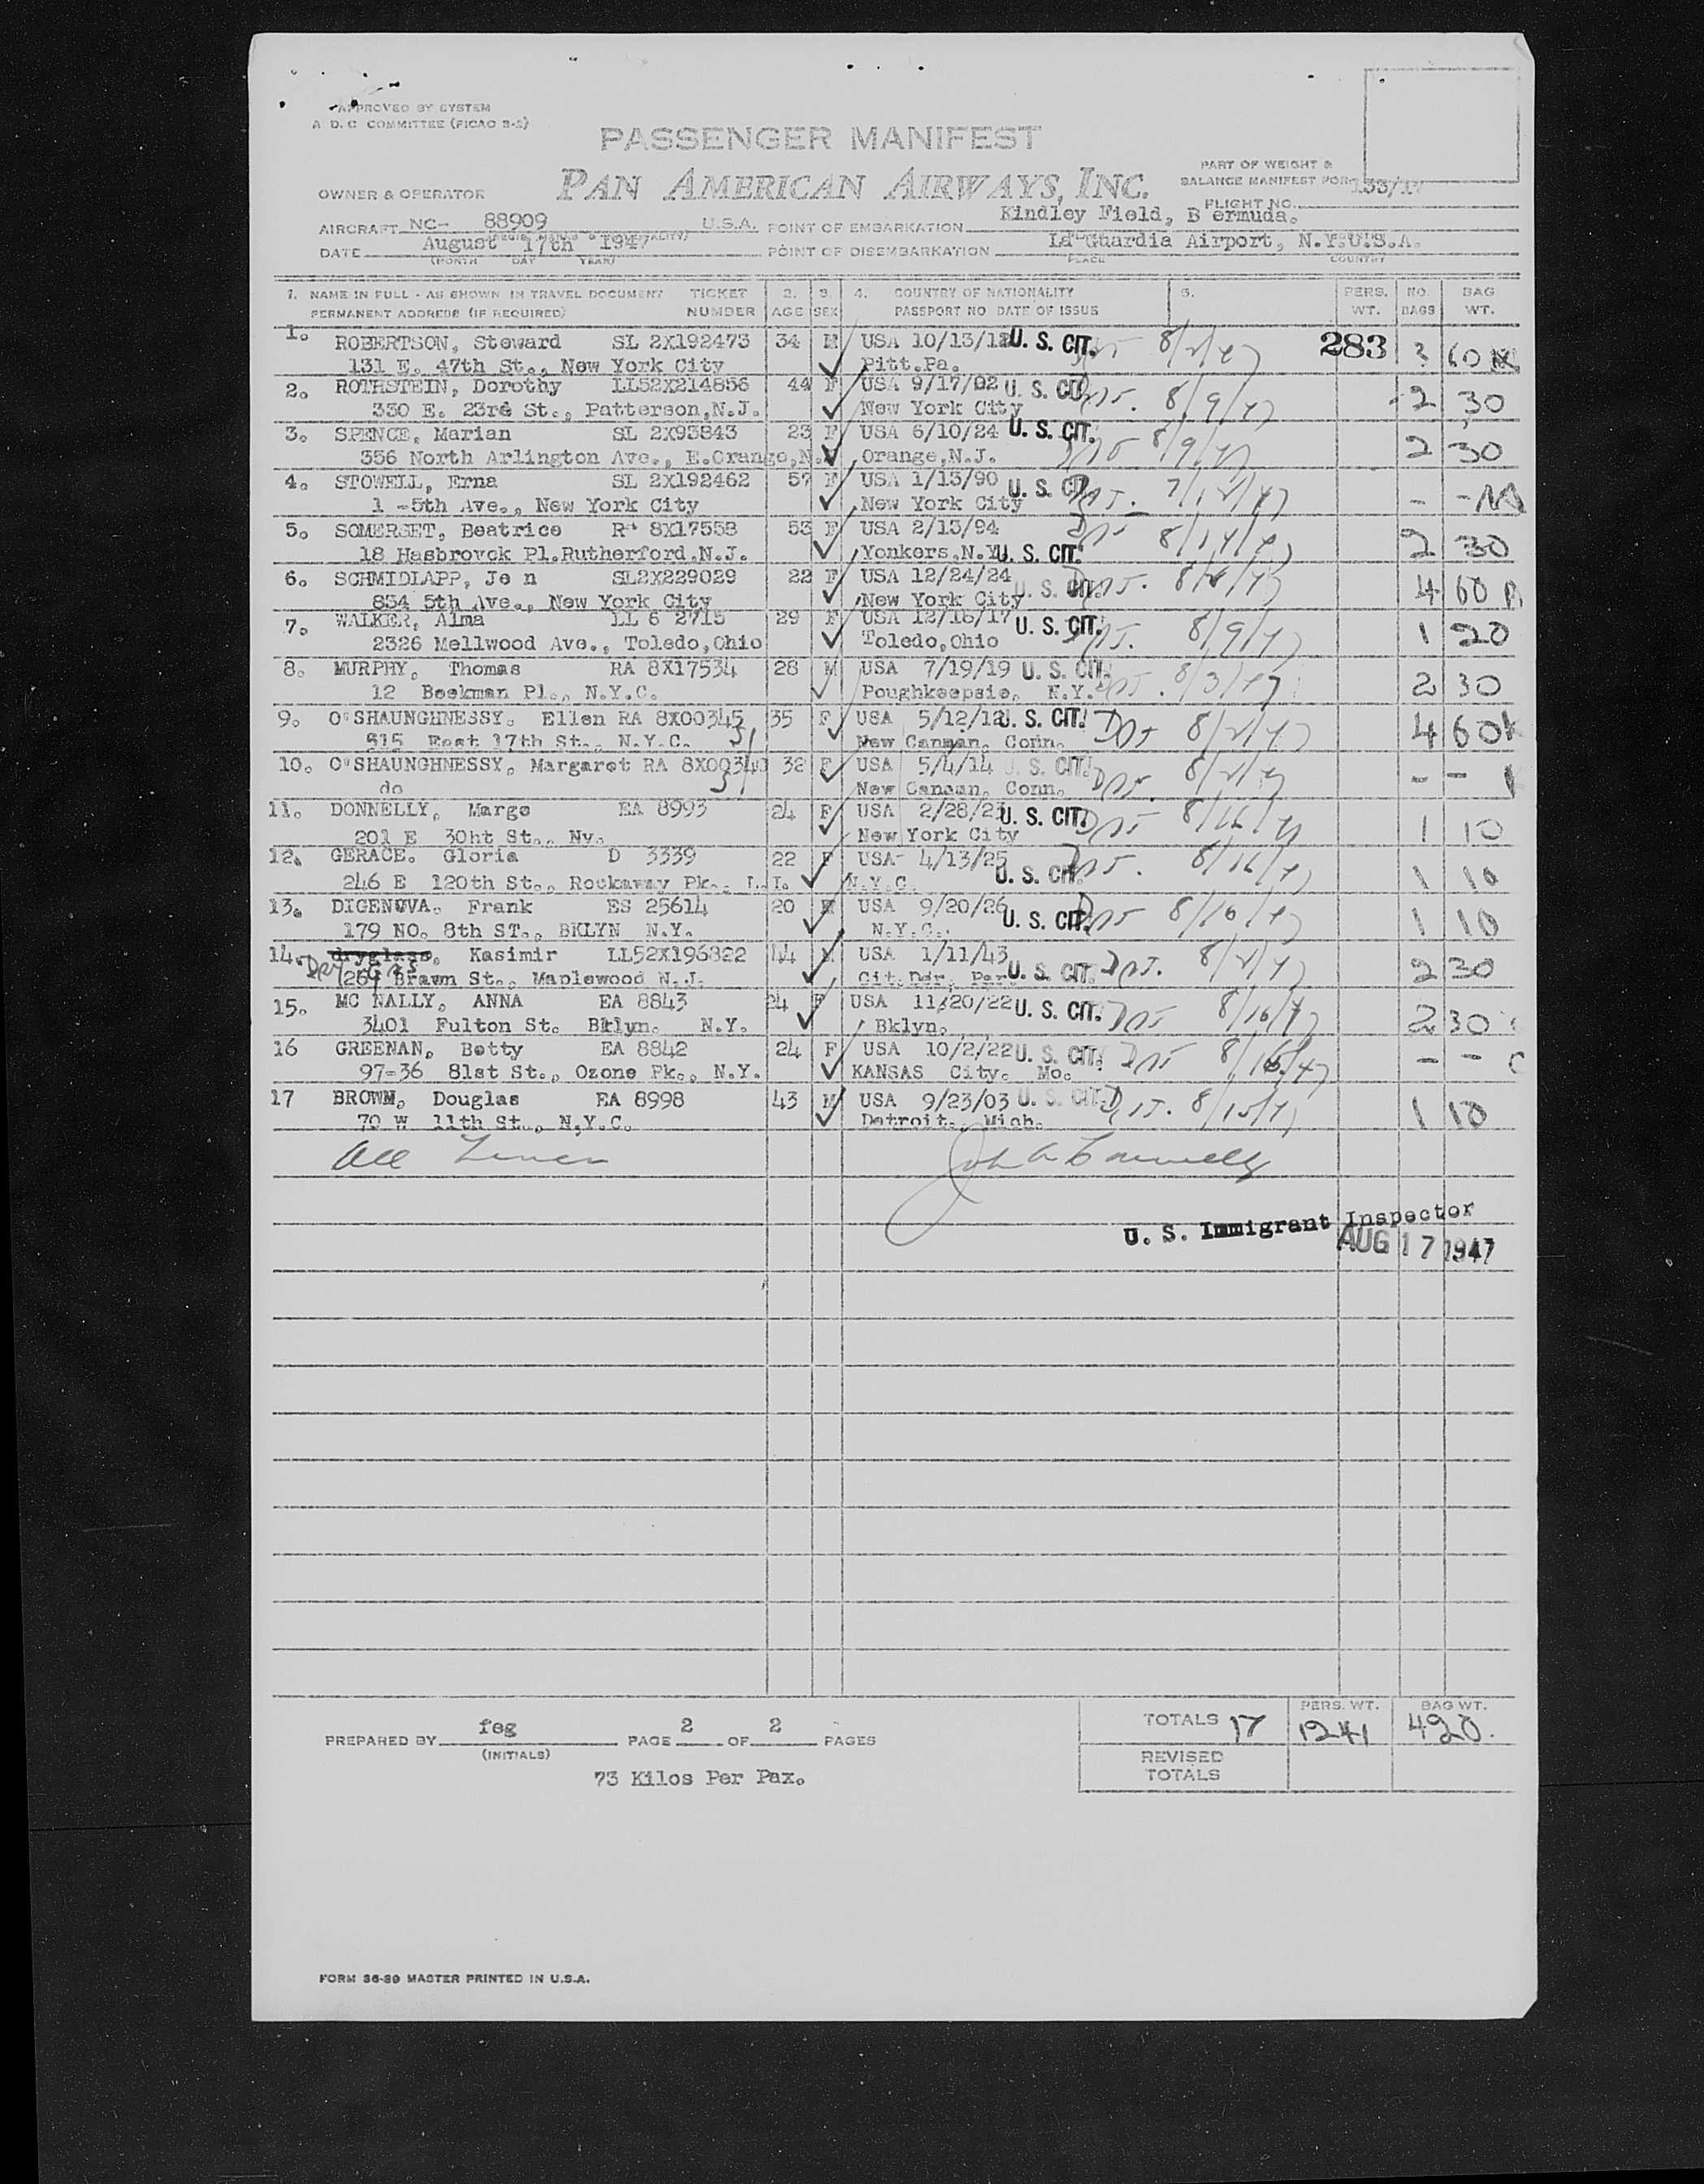 APPROVED BY SYSTEM
A. D. C COMMITTEE (PICAO 3-2)
PASSENGER MANIFEST
PAN AMERICAN AIRWAYS, INC.
PART OF WEIGHT &
BALANCE MANIFEST FOR 133/17
FLIGHT NO.
OWNER & OPERATOR
AIRCRAFT NC- 88909 U.S.A. POINT OF EMBARKATION Kindley Field, B ermuda.
DATE August 17th 1947 POINT OF DISEMBARKATION La Guardia Airport, N.Y.U.S.A.
(MONTH DAY YEAR) PLACE COUNTRY
1. NAME IN FULL - AS SHOWN IN TRAVEL DOCUMENT TICKET 2. 3. 4. COUNTRY OF NATIONALITY 5. PERS. NO. BAG
PERMANENT ADDRESS (IF REQUIRED) NUMBER AGE SEX PASSPORT NO DATE OF ISSUE WT. BAGS WT.
1. ROBERTSON, Steward SL 2X192473 34 M USA 10/13/12 U. S. CIT. 8/2/47 283 60
131 E. 47th St., New York City Pitt.Pa.
2. ROTHSTEIN, Dorothy LL52X214856 44 F USA 9/17/02 U. S. CIT. 8/9/47 2 30
330 E. 23rd St., Patterson,N.J. New York City
3. SPENCE, Marian SL 2X93843 23 F USA 6/10/24 U. S. CIT. 8/9/47 2 30
556 North Arlington Ave., E.Orange,N. Orange,N.J.
4. STOWELL, Erna SL 2X192462 57 F USA 1/13/90 U. S. CIT. 7/12/47 - -
1 -5th Ave., New York City New York City
5. SOMERSET, Beatrice RA 8X17558 53 F USA 2/13/94 8/17/47 2 30
18 Hasbrouck Pl.Rutherford.N.J. Yonkers.N.Y. U. S. CIT.
6. SCHMIDLAPP, Je n SL2X229029 22 F USA 12/24/24 U. S. CIT. 4 60
834 5th Ave., New York City New York City
7. WALKER, Alma LL 6 2715 29 F USA 12/18/17 U. S. CIT. 8/9/47 1 20
2326 Mellwood Ave., Toledo,Ohio Toledo,Ohio
8. MURPHY, Thomas RA 8X17534 28 M USA 7/19/19 U. S. CIT. 8/3/47 2 30
12 Beekman Pl., N.Y.C. Poughkeepsie, N.Y.
9. O'SHAUNGHNESSY, Ellen RA 8X00345 35 F USA 5/12/12 U. S. CIT. 8/2/47 4 60
515 East 17th St., N.Y.C. New Canaan, Conn.
10. O'SHAUNGHNESSY, Margaret RA 8X00340 32 F USA 5/4/14 U. S. CIT. 8/2/47 - -
do New Canaan, Conn.
11. DONNELLY, Marge EA 8993 24 F USA 2/28/23 U. S. CIT. 8/16/47 1 10
201 E 30ht St., Ny. New York City
12. GERACE. Gloria D 3339 22 F USA- 4/13/25 8/16/47 1 10
246 E 120th St., Rockaway Pk., L.I. N.Y.C. U. S. CIT.
13. DIGENOVA, Frank ES 25614 20 M USA 9/20/26 U. S. CIT. 8/16/47 1 10
179 NO. 8th ST., BKLYN N.Y. N.Y.C.
14. dryglass, Kasimir LL52X196822 44 M USA 1/11/43 U. S. CIT. 8/2/47 2 30
Brawn St., Maplewood N.J. Cit.
15. MC NALLY, ANNA EA 8843 24 F USA 11/20/22 U. S. CIT. 8/16/47 2 30
3401 Fulton St. Bklyn. N.Y. Bklyn.
16 GREENAN, Betty EA 8842 24 F USA 10/2/22 U. S. CIT. 8/16/47 - -
97-36 81st St., Ozone Pk., N.Y. KANSAS City. Mo.
17 BROWN, Douglas EA 8998 43 M USA 9/23/03 U. S. CIT. 8/15/47 1 10
70 W 11th St., N.Y.C. Detroit, Mich.
U. S. Immigrant Inspector
AUG 17 1947
TOTALS 17 PERS. WT. 1241 BAG WT. 420.
PREPARED BY feg PAGE 2 OF 2 PAGES
(INITIALS)
REVISED
TOTALS
73 Kilos Per Pax.
FORM 36-89 MASTER PRINTED IN U.S.A.